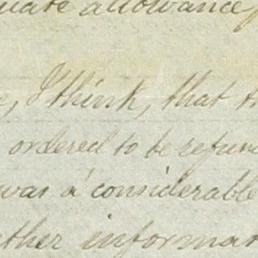 uate allowance
, I think, that th
ordered to be refun
was a considerable
ther informa